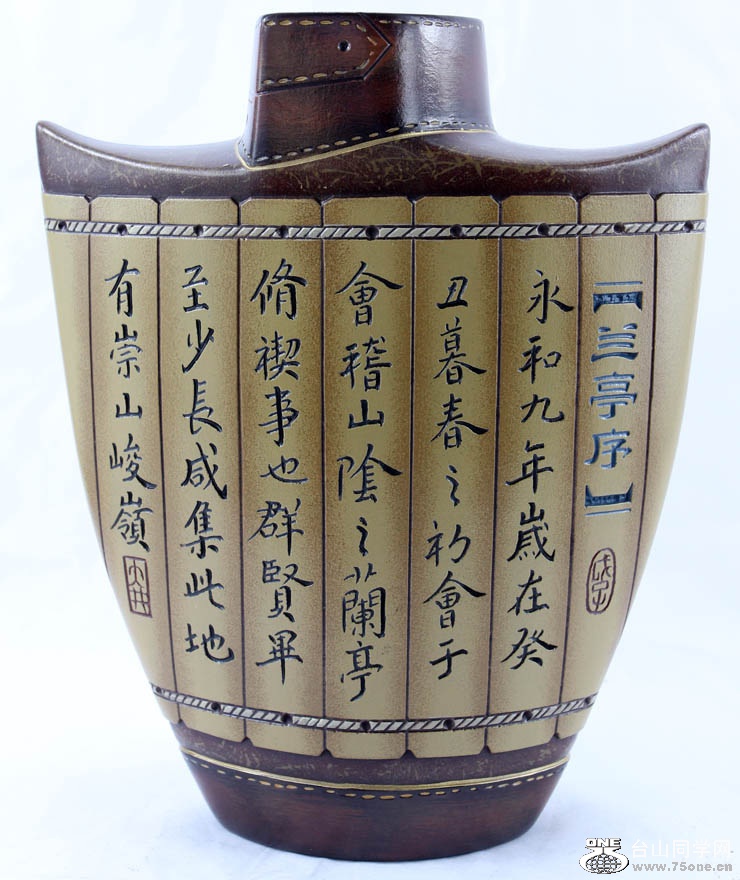 【兰亭序】
永和九年歲在癸
丑暮春之初會于
會稽山陰之蘭亭
脩禊事也群賢畢
至少長咸集此地
有崇山峻嶺
ONE
台山同学网
www.75one.cn